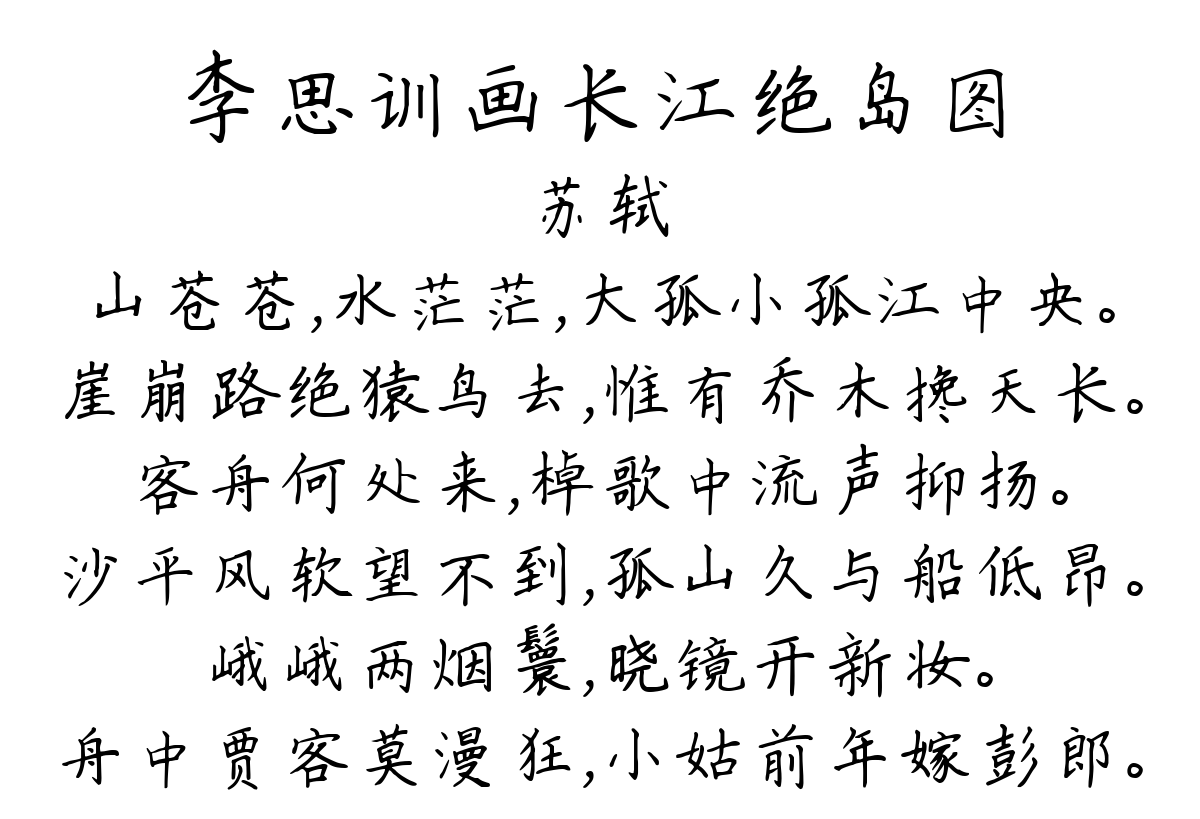 李思训画长江绝岛图
苏轼
山苍苍,水茫茫,大孤小孤江中央。
崖崩路绝猿鸟去,惟有乔木搀天长。
客舟何处来,棹歌中流声抑扬。
沙平风软望不到,孤山久与船低昂。
峨峨两烟鬟,晓镜开新妆。
舟中贾客莫漫狂,小姑前年嫁彭郎。